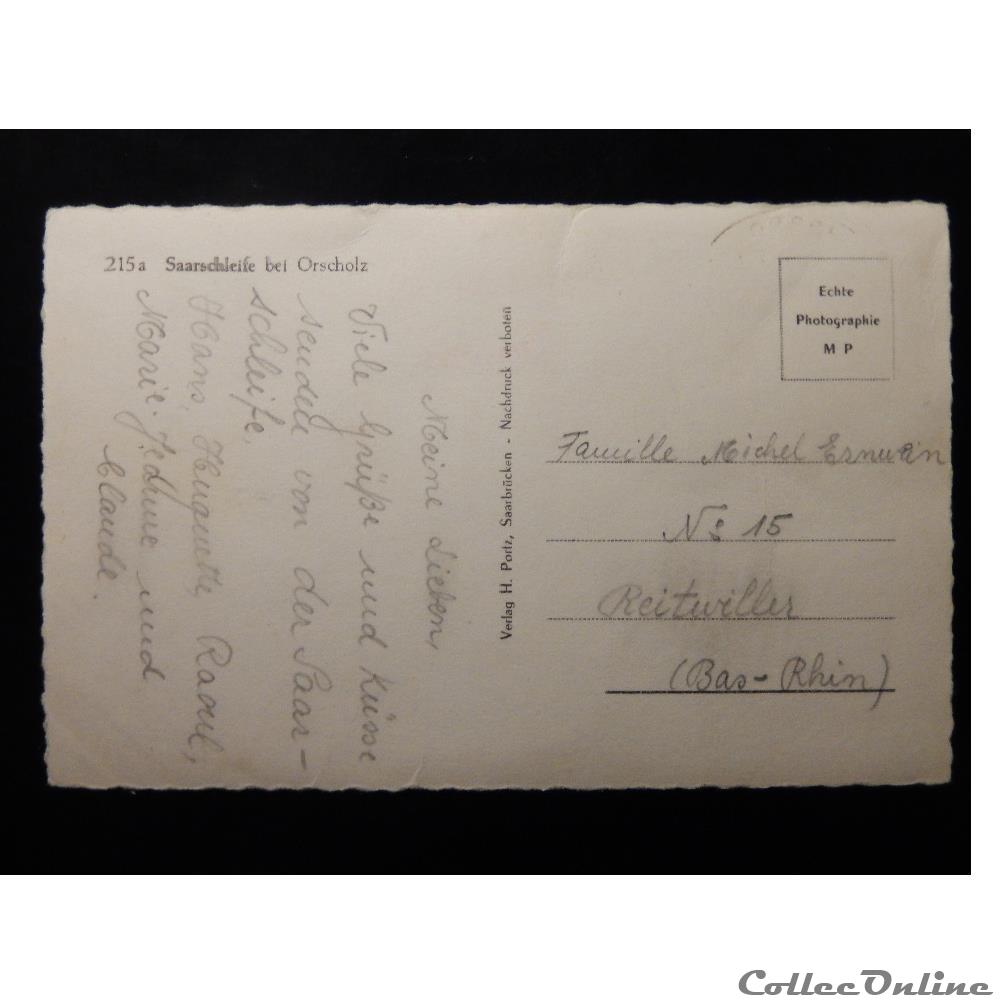 215a Saarschleife bei Orscholz
Meine Lieben,
Viele Grüße und Küsse
senden von der Saar-
schleife,
Hans, Huguette, Raoul,
Marie-Jeanne und
Claude.
Verlag H. Portz, Saarbrücken - Nachdruck verboten
Echte
Photographie
M P
Famille Michel Ernwein
N: 15
Reitwiller
(Bas-Rhin)
CollecOnline